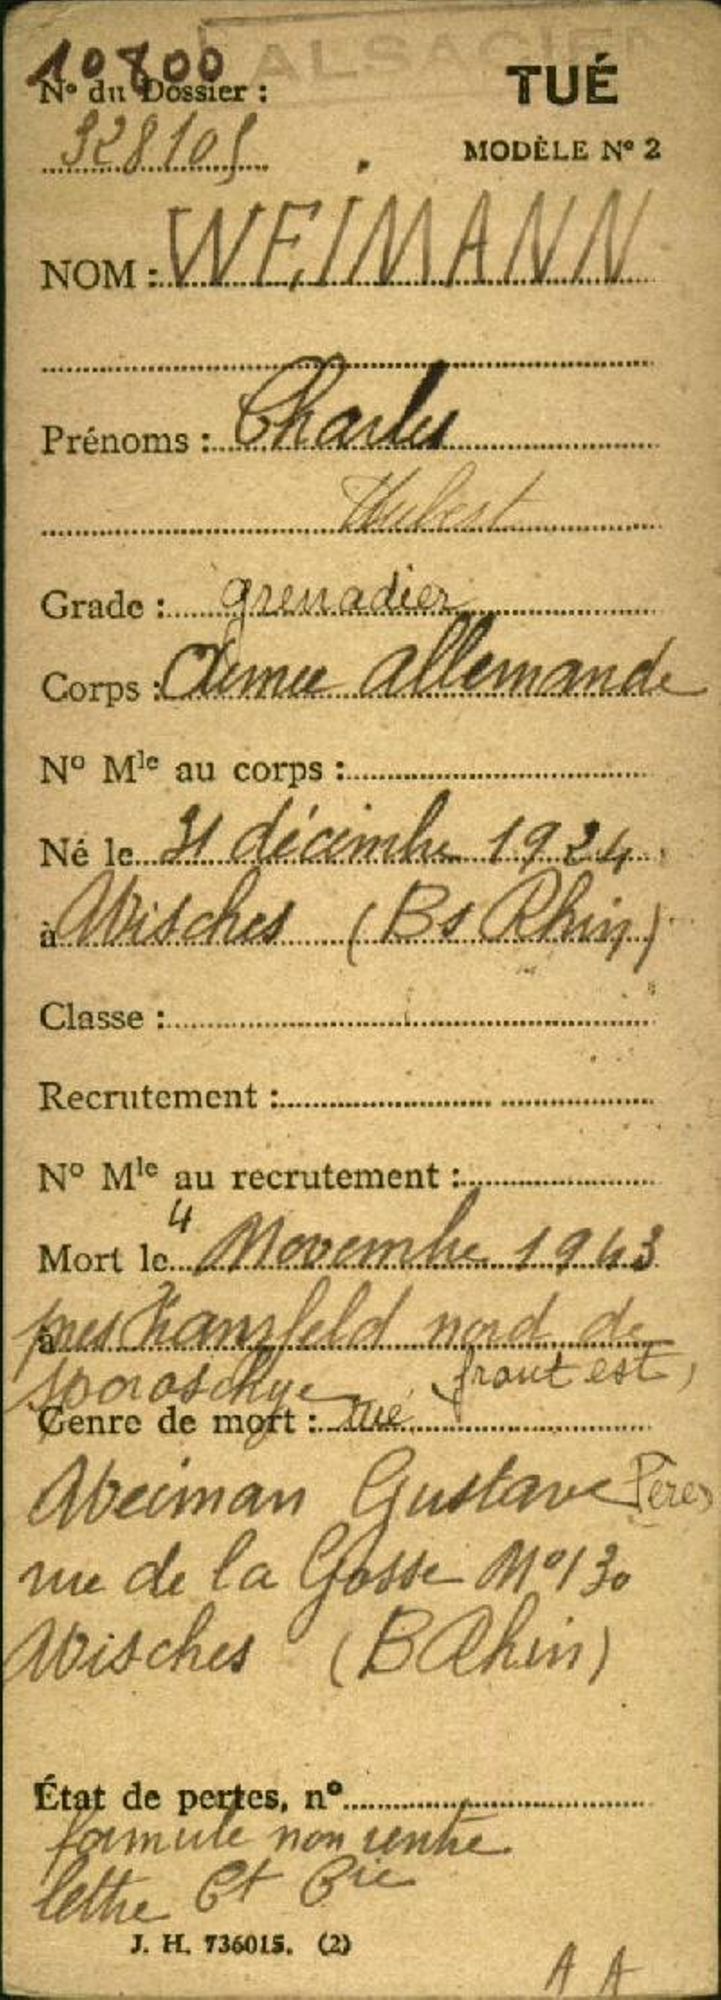 ALSACIEN
10800
N° du Dossier :
TUÉ
MODÈLE N° 2
NOM : WEIMANN
Prénoms : Charles
Hubert
Grade : grenadier
Corps : Armée allemande
N° Mle au corps :
Né le 31 décembre 1924
à Wisches (Bs Rhin)
Classe :
Recrutement :
N° Mle au recrutement :
Mort le 4 Novembre 1943
à près nord de
front est,
Genre de mort : tué
Weiman Gustave Père
rue de la Gosse N° 130
Wisches (B Rhin)
État de pertes, n°
formule non rentré
lettre Et Cie
J. H. 736015. (2)
A A